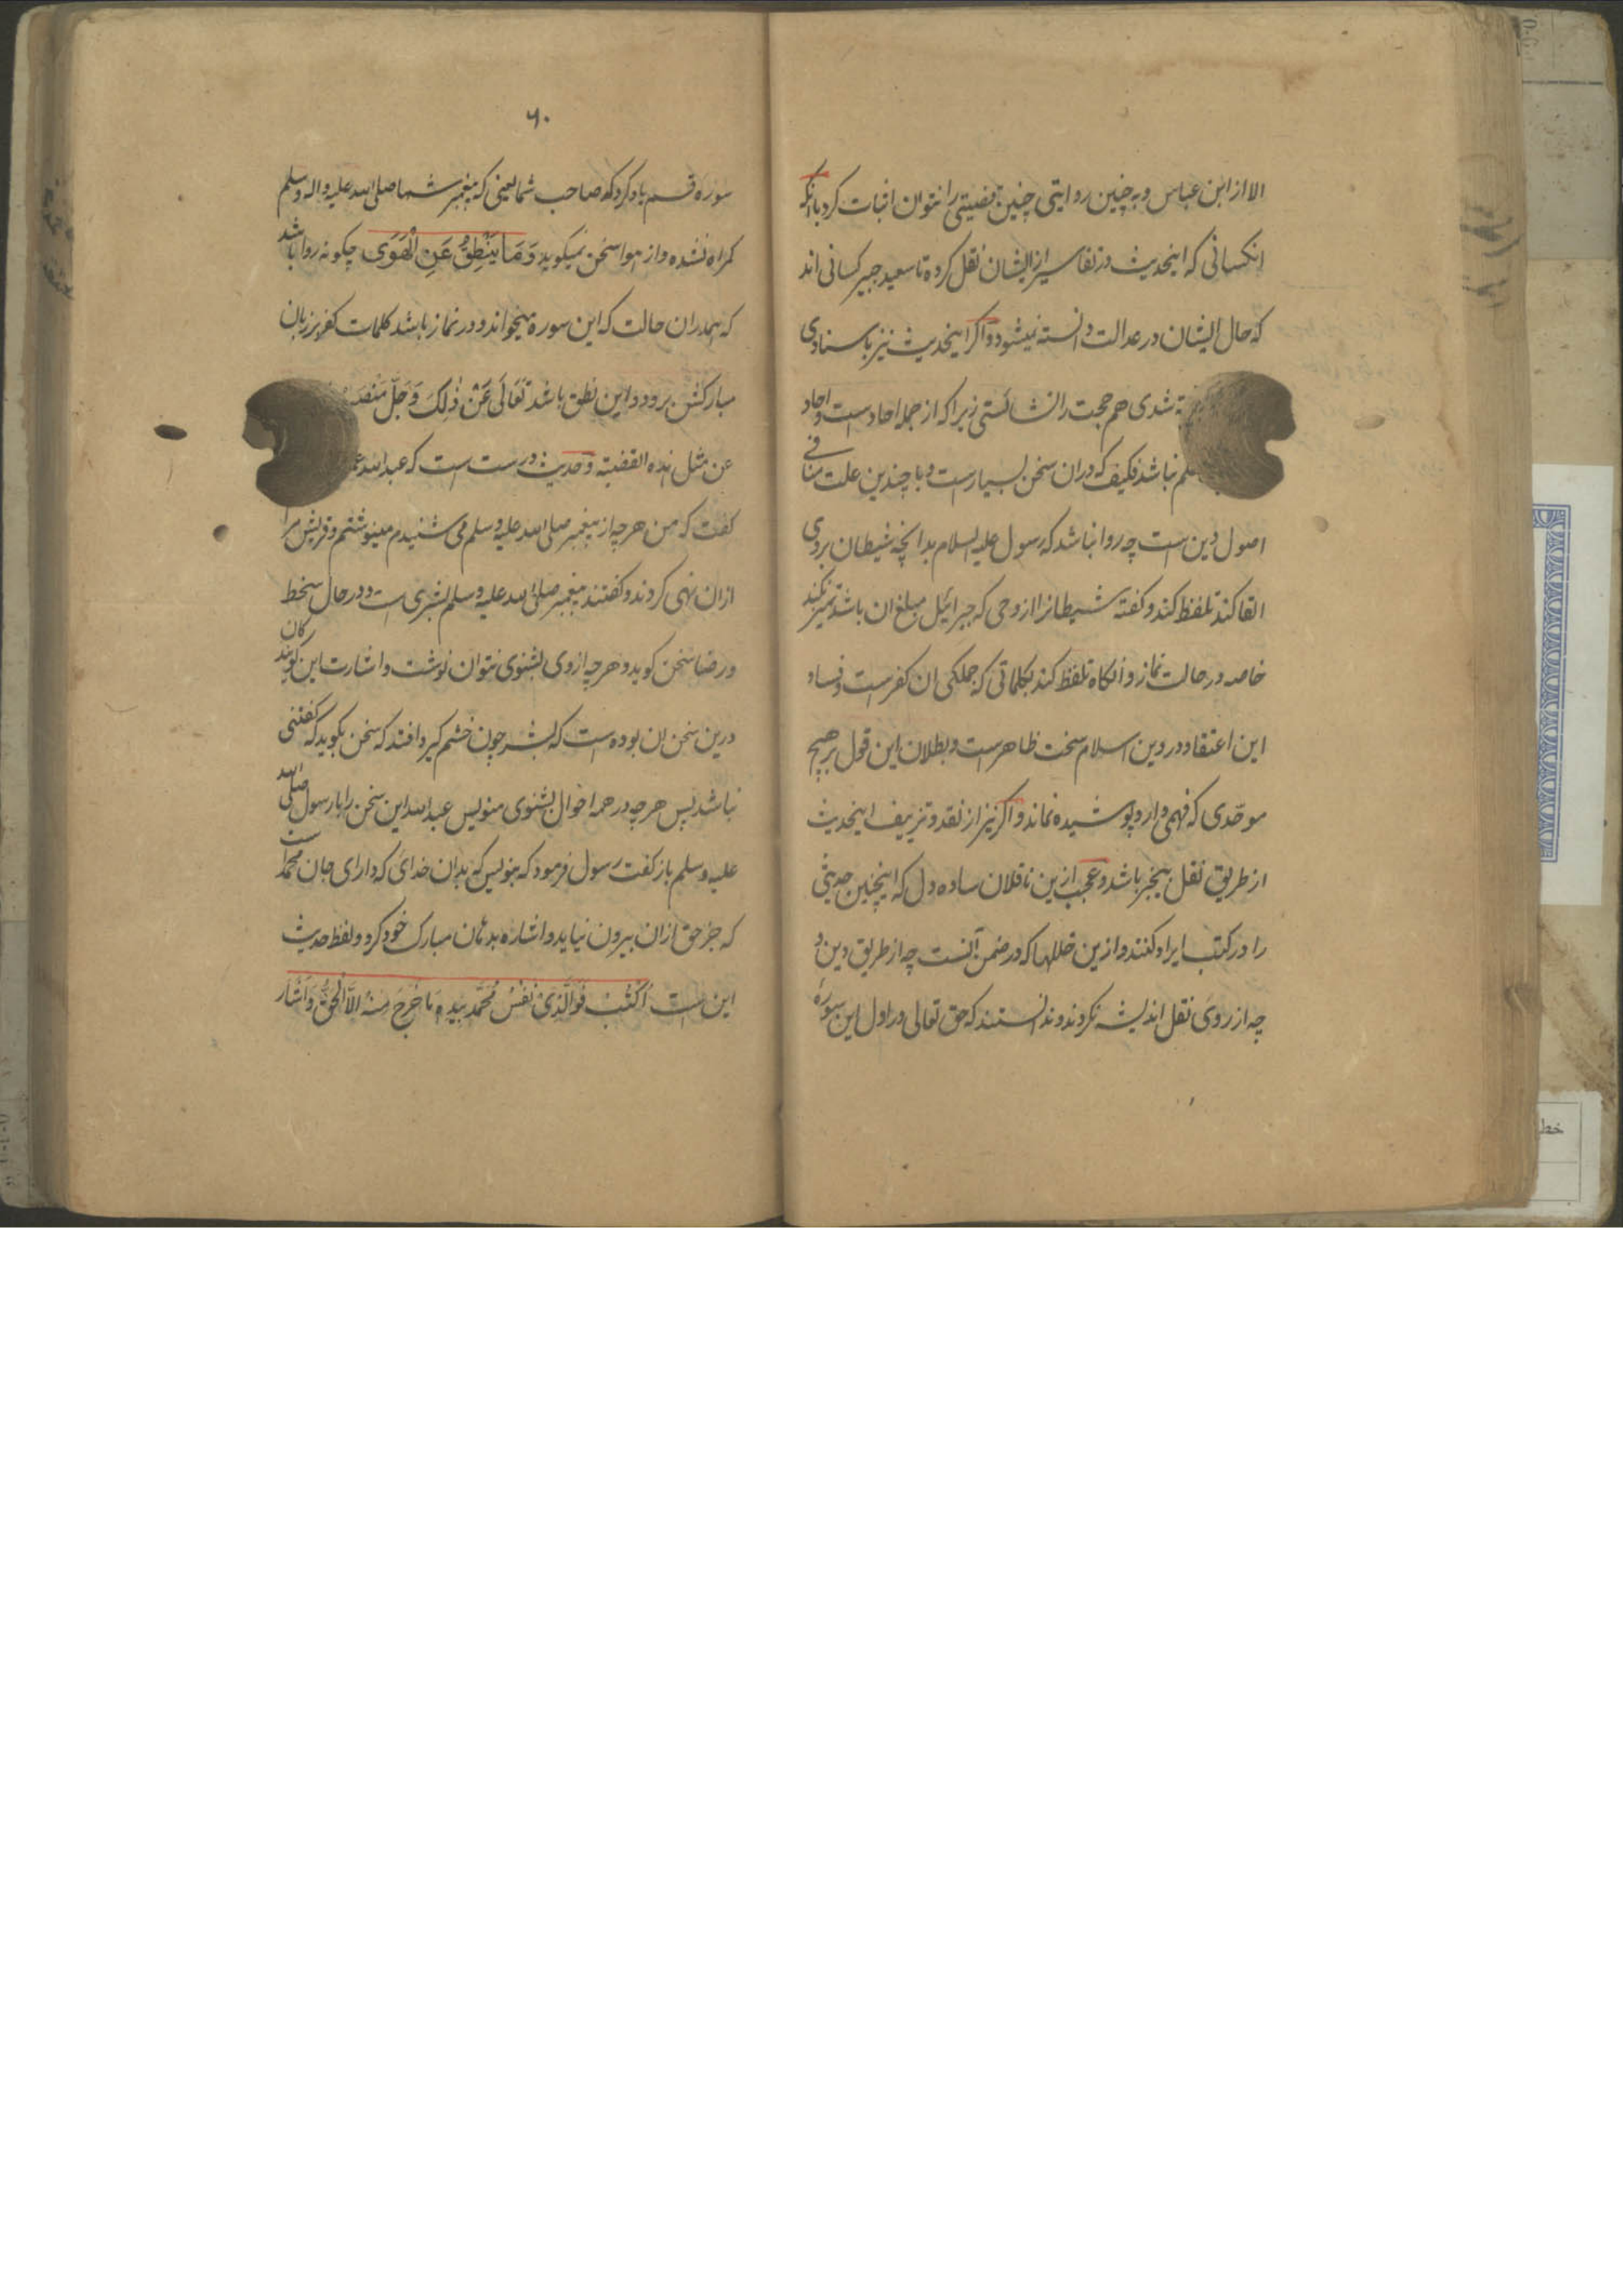 الا از ابن عباس و به چنین روایتی چنین قضیتی را نتوان اثبات کرد با انکه
انکسانی که اینحدیث در تفاسیر از ایشان نقل کرده تا سعید جبیر کسانی اند
که حال ایشان در عدالت دانسته نمیشود و اکر اینحدیث نیز باسنادی
شدی هم حجت را نشائستی زیرا که از جمله احادست و احاد
علم نباشد فکیف که دران سخن بسیارست و با چندین علت منافی
اصول دین است چه روا نباشد که رسول علیه السلام بدانچه شیطان بروی
القا کند تلفظ کند و کفته شیطانرا از وحی که جبرائیل مبلغ ان باشد تمیز نکند
خاصه در حالت نماز و انکاه تلفظ کند بکلماتی که جملکی ان کفرست و فساد
این اعتقاد در دین اسلام سخت ظاهرست و بطلان این قول بر هیچ
موحّدی که فهمی دارد پوشیده نماند و اکر نیز از نقد و تزییف اینحدیث
از طریق نقل بیخبر باشد و عجب ازین ناقلان ساده دل که اینچنین حدیثی
را در کتب ایراد کنند و ازین خللها که در ضمن آنست چه از طریق دین و
چه از روی نقل اندیشه نکردند و ندانستند که حق تعالی در اول این سورهٔ
۶۰
سوره قسم یاد کرد که صاحب شما یعنی که پیغمبر شما صلی الله علیه و اله وسلم
کمراه نشده و از هوا سخن نمیکوید وَمَا یَنْطِقُ عَنِ الْهَوَی چکونه روا باشد
که همدران حالت که این سوره میخواند و در نماز باشد کلمات کفر بر زبان
مبارکش برود و این نطق باشد تَعَالَی عَنْ ذٰلِکَ وَجَلَّ مَنْصَبُ
عن مثل هذه القضیة و حدیث درست است که عبد الله
کفت که من هرچه از پیغمبر صلی الله علیه وسلم می شنیدم مینوشتم و قریش مرا
ازان نهی کردند و کفتند پیغمبر صلی الله علیه وسلم بشری است و در حال سخط
و رضا سخن کوید و هرچه از وی بشنوی نتوان نوشت و اشارت این کویندکان
درین سخن ان بوده است که بشر چون خشم کیرد افتد که سخن بکوید که کفتنی
نباشد پس هرچه در همه احوال بشنوی منویس عبد الله این سخن را با رسول صلی الله
علیه وسلم باز کفت رسول فرمود که بنویس که بدان خدائ که دارای جان محمد است
که جز حق ازان بیرون نیاید و اشاره بدهان مبارک خود کرد و لفظ حدیث
این است اُکْتُبْ فَوَالَّذِیْ نَفْسُ مُحَمَّدٍ بِیَدِهِ مَا خَرَجَ مِنْهُ اِلَّا الْحَقُّ وَاَشَارَ
خط